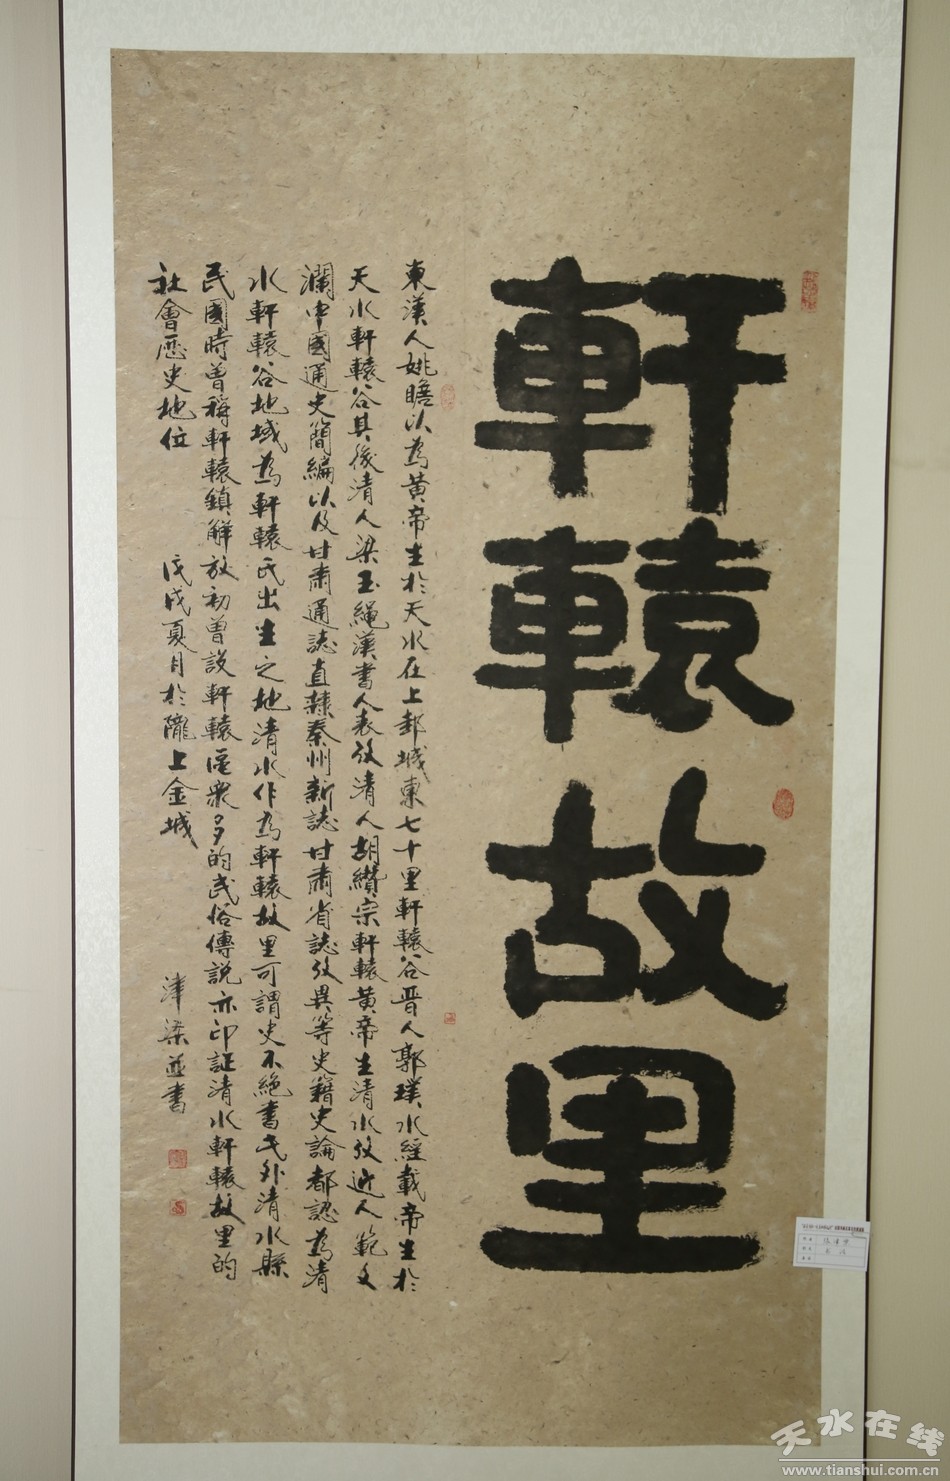 軒轅故里
東漢人姚瞻以為黃帝生於天水在上邽城東七十里軒轅谷晋人郭璞水經載帝生於
天水軒轅谷其後清人梁玉繩漢書人表攷清人胡纘宗軒轅黃帝生清水攷近人範文
瀾中國通史簡編以及甘肅通誌直隸秦州新誌甘肅省誌攷異等史籍史論都認為清
水軒轅谷地域為軒轅氏出生之地清水作為軒轅故里可謂史不絕書另外清水縣
民國時曾稱軒轅鎮解放初曾設軒轅區衆多的民俗傳說亦印証清水軒轅故里的
社會歷史地位
戊戌夏月於隴上金城
津梁並書
天水在线
www.tianshui.com.cn